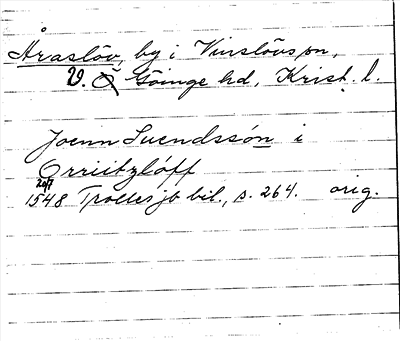 Åraslöv, by i Vinslövs sn,
V. Göinge hd, Krist. l.
Joenn Suendssón i
Orriitzlóff
20/7
1548 Trolles jb bil., s. 264. orig.